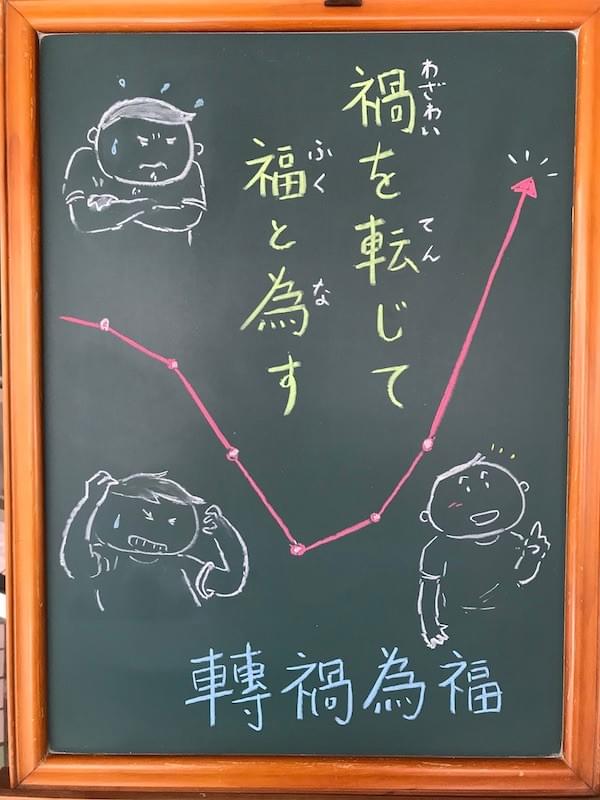 禍を転じて
わざわい
てん
福と為す
ふく
な
轉禍為福